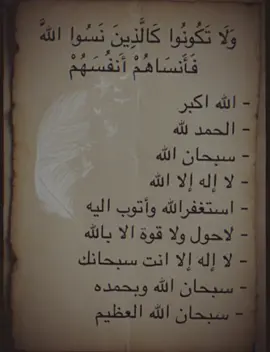 وَلَا تَكُونُوا كَالَّذِينَ نَسُوا اللَّهَ
فَأَنسَاهُمْ أَنفُسَهُمْ
- الله اكبر
- الحمد لله
- سبحان الله
- لا إله إلا الله
- استغفرالله وأتوب اليه
- لاحول ولا قوة الا بالله
- لا إله إلا انت سبحانك
- سبحان الله وبحمده
- سبحان الله العظيم